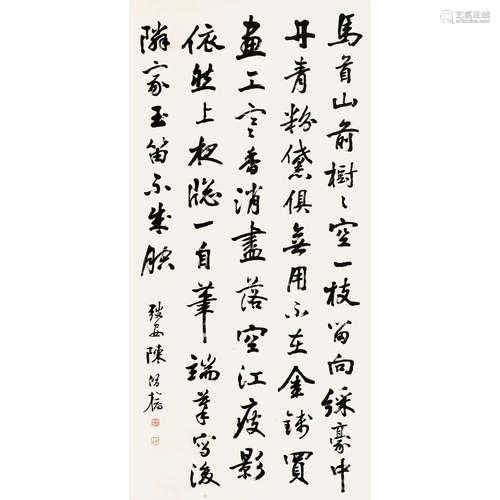 馬首山前樹〻空一枝留向綵豪中
丹青粉黛俱無用不在金錢買
畫工寒香消盡落空江影
依然上夜牕一自筆端摹寫後
隣家玉笛不成腔
安陳
艺狐在线